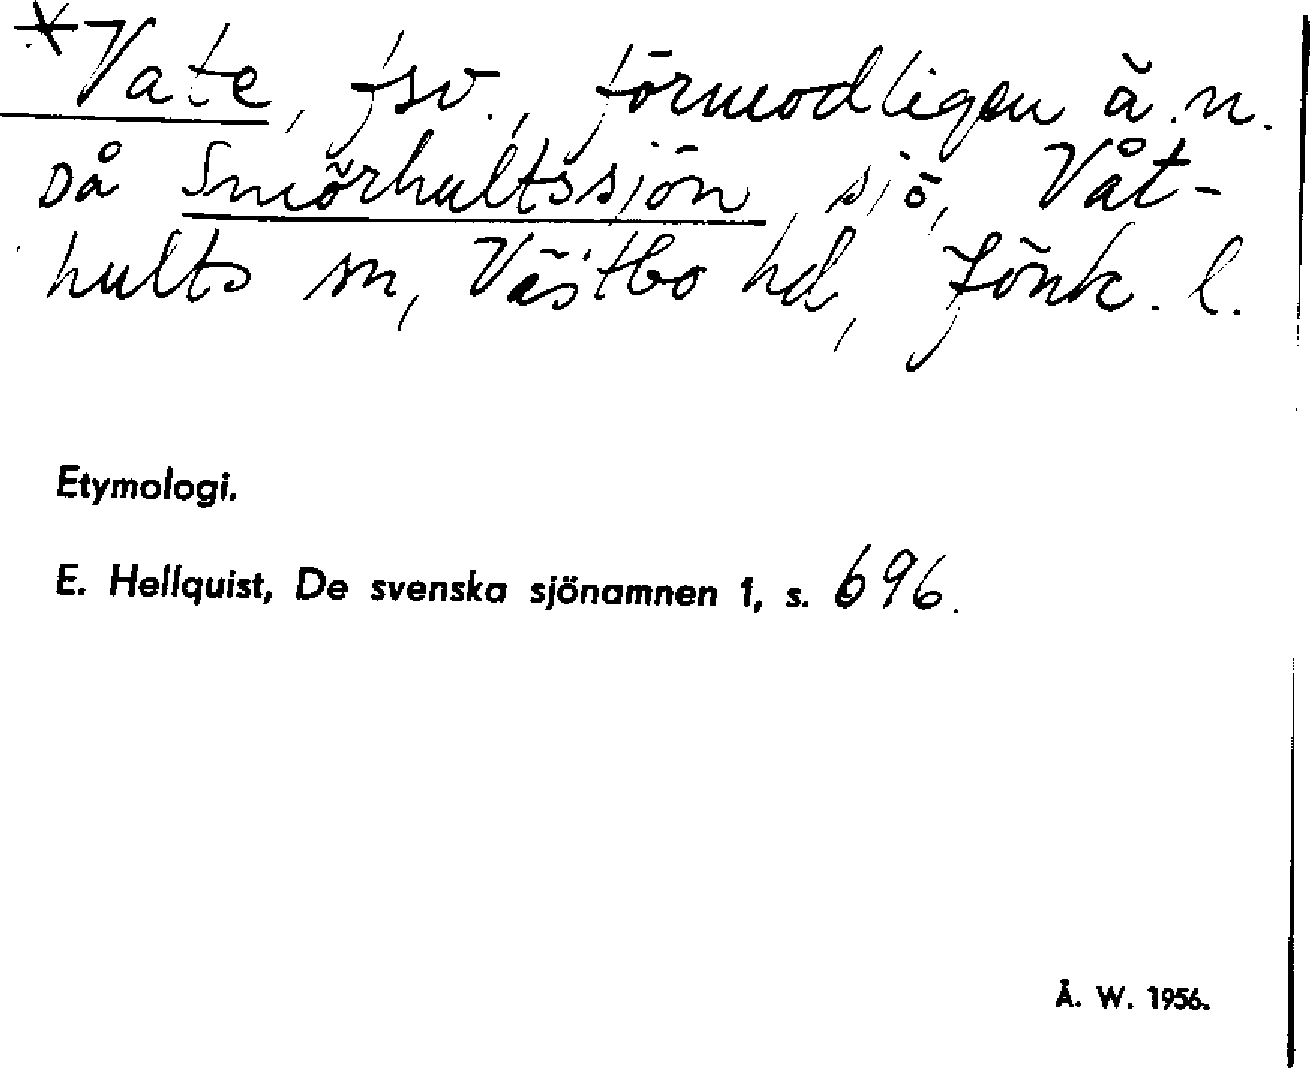 *Vate, fsv., förmodligen ä. n.
på Smörhultssjön, sjö, Våt-
hults sn, Västbo hd, Jönk. l.
Etymologi.
E. Hellquist, De svenska sjönamnen 1, s. 696.
Å. W. 1956.